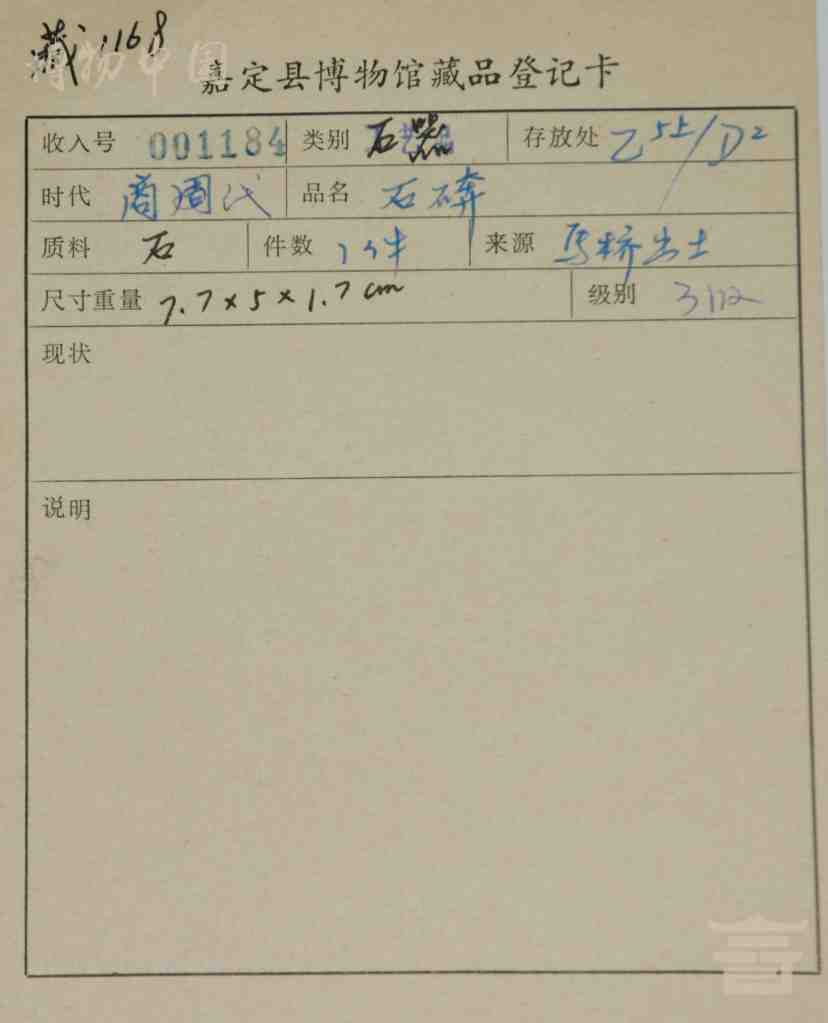 藏1168
博物中国
嘉定县博物馆藏品登记卡
收入号 001184 类别 石器 存放处 乙5上/D2
时代 商周代 品名 石锛
质料 石 件数 1件 来源 马桥出土
尺寸重量 7.7×5×1.7cm 级别 3级
现状
说明